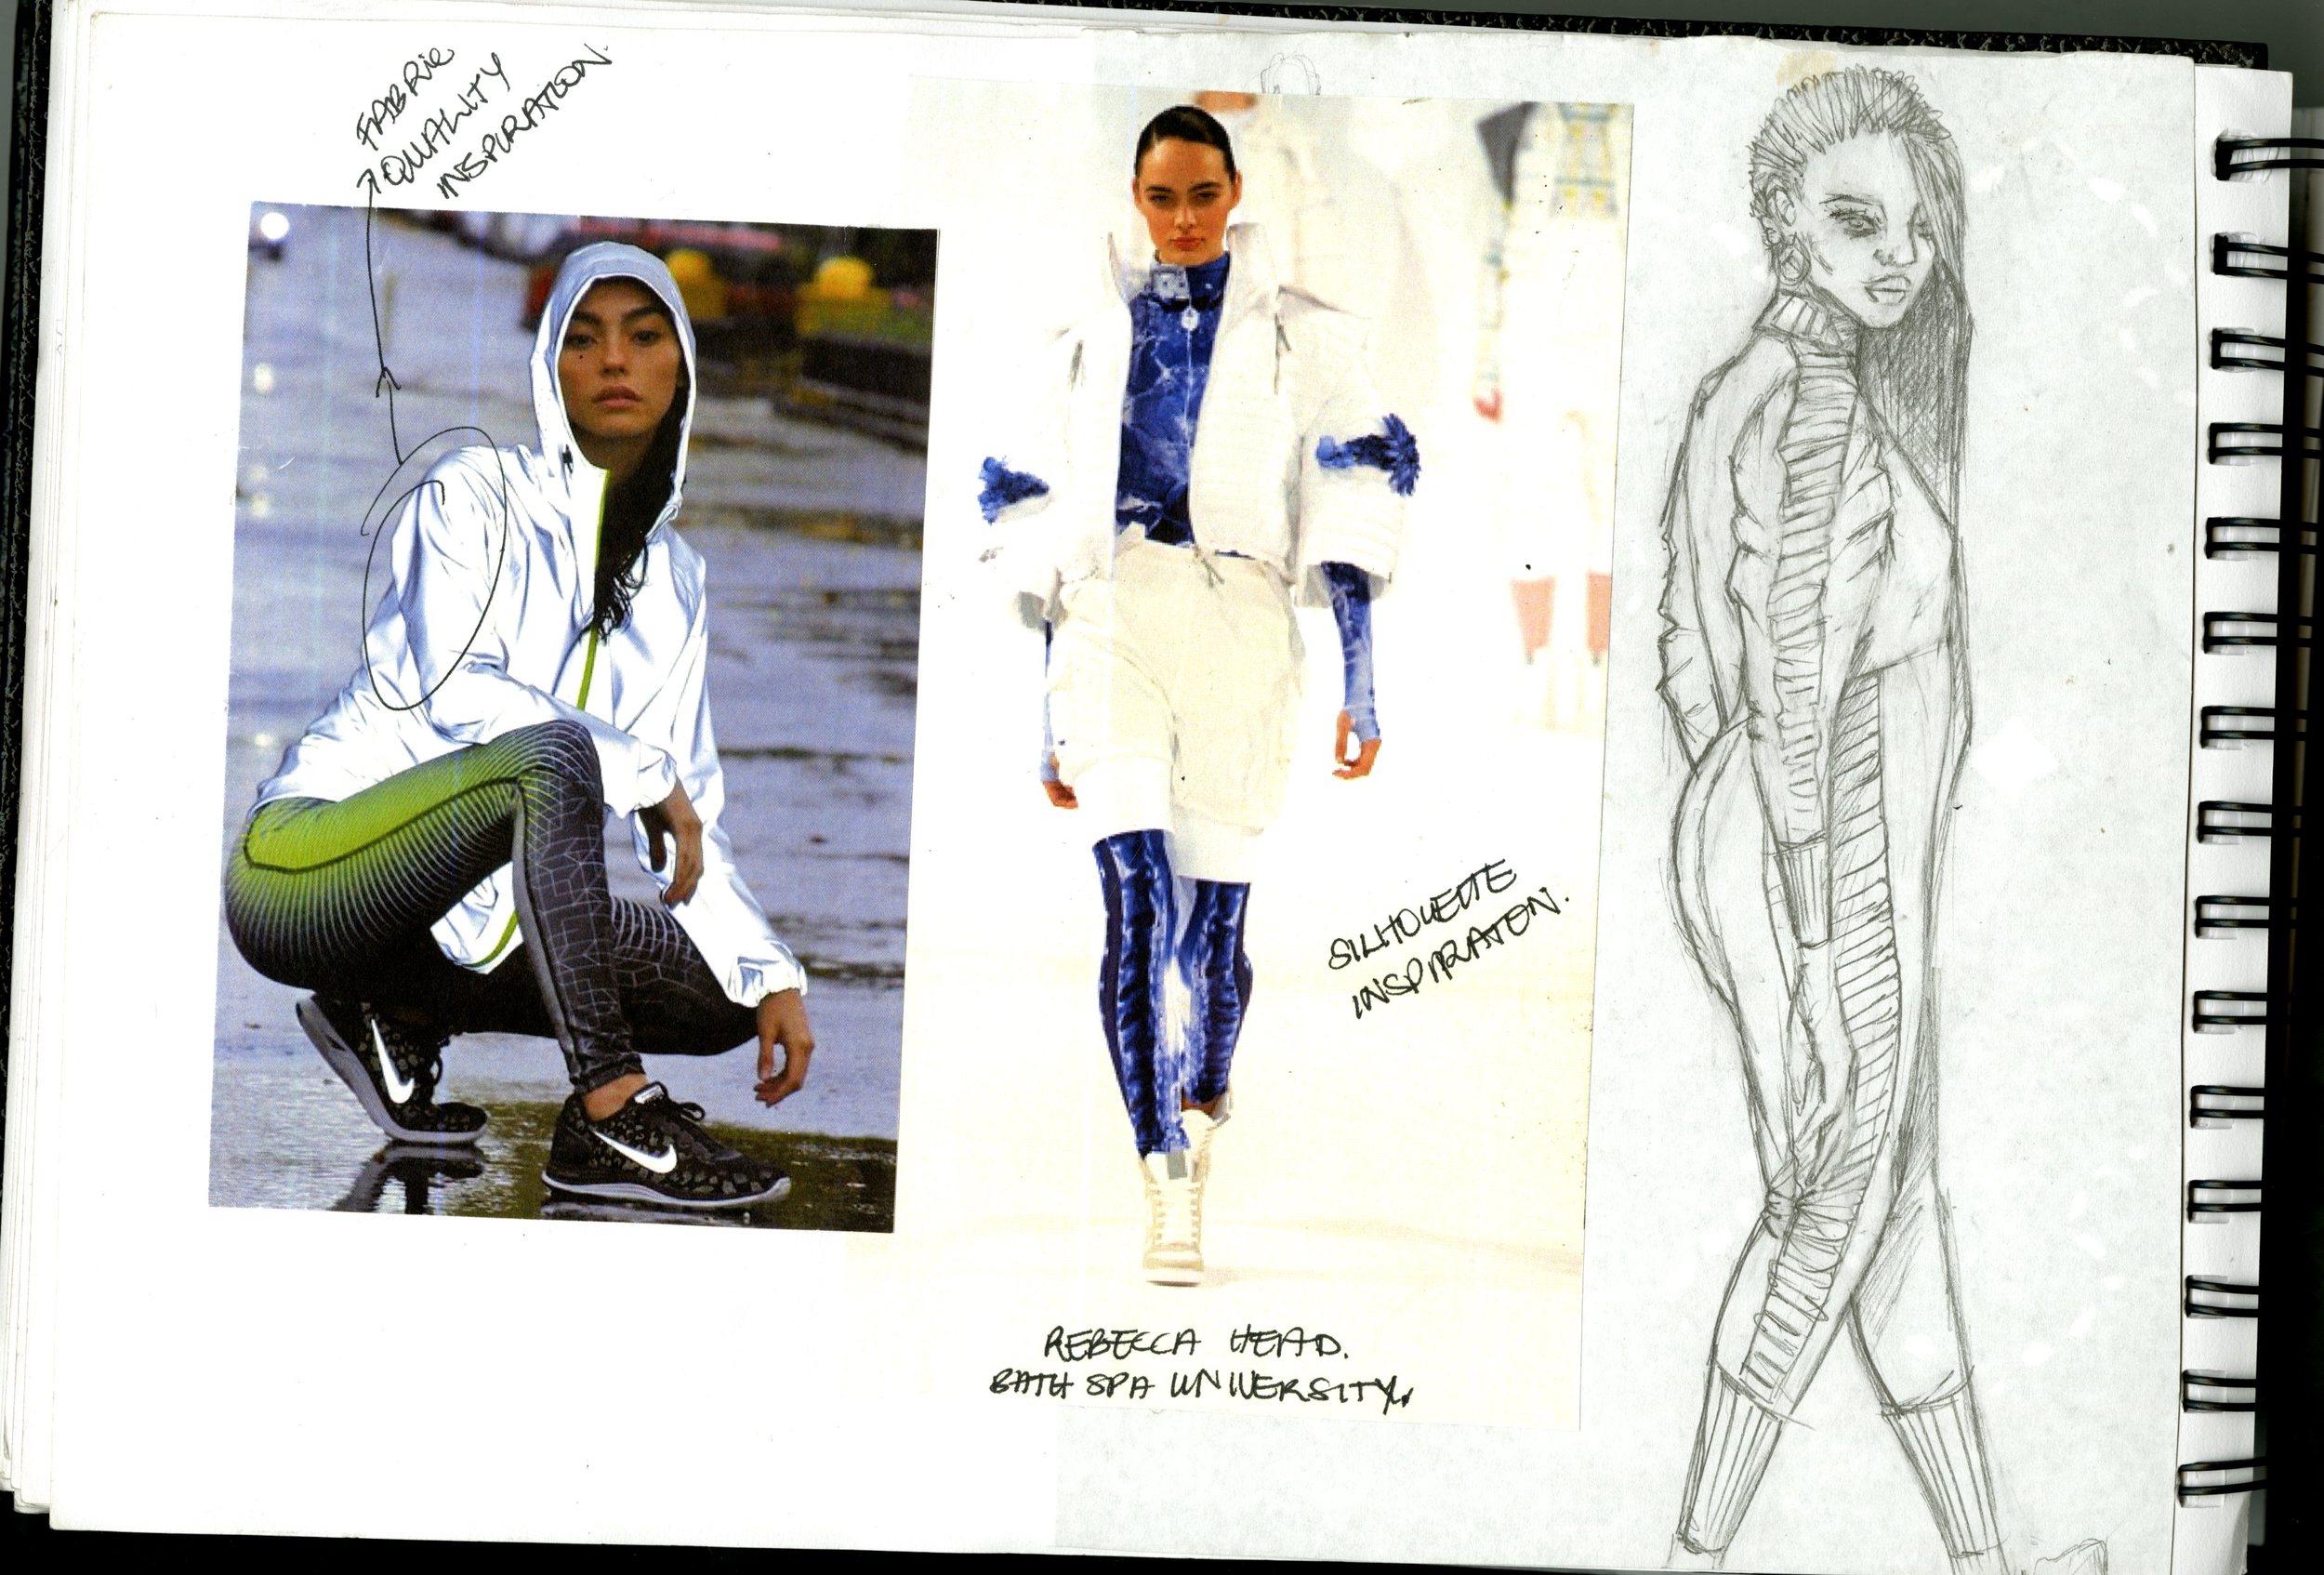 FABRIC
QUALITY
INSPIRATION.
SILHOUETTE
INSPIRATION.
REBECCA HEAD.
BATH SPA UNIVERSITY.